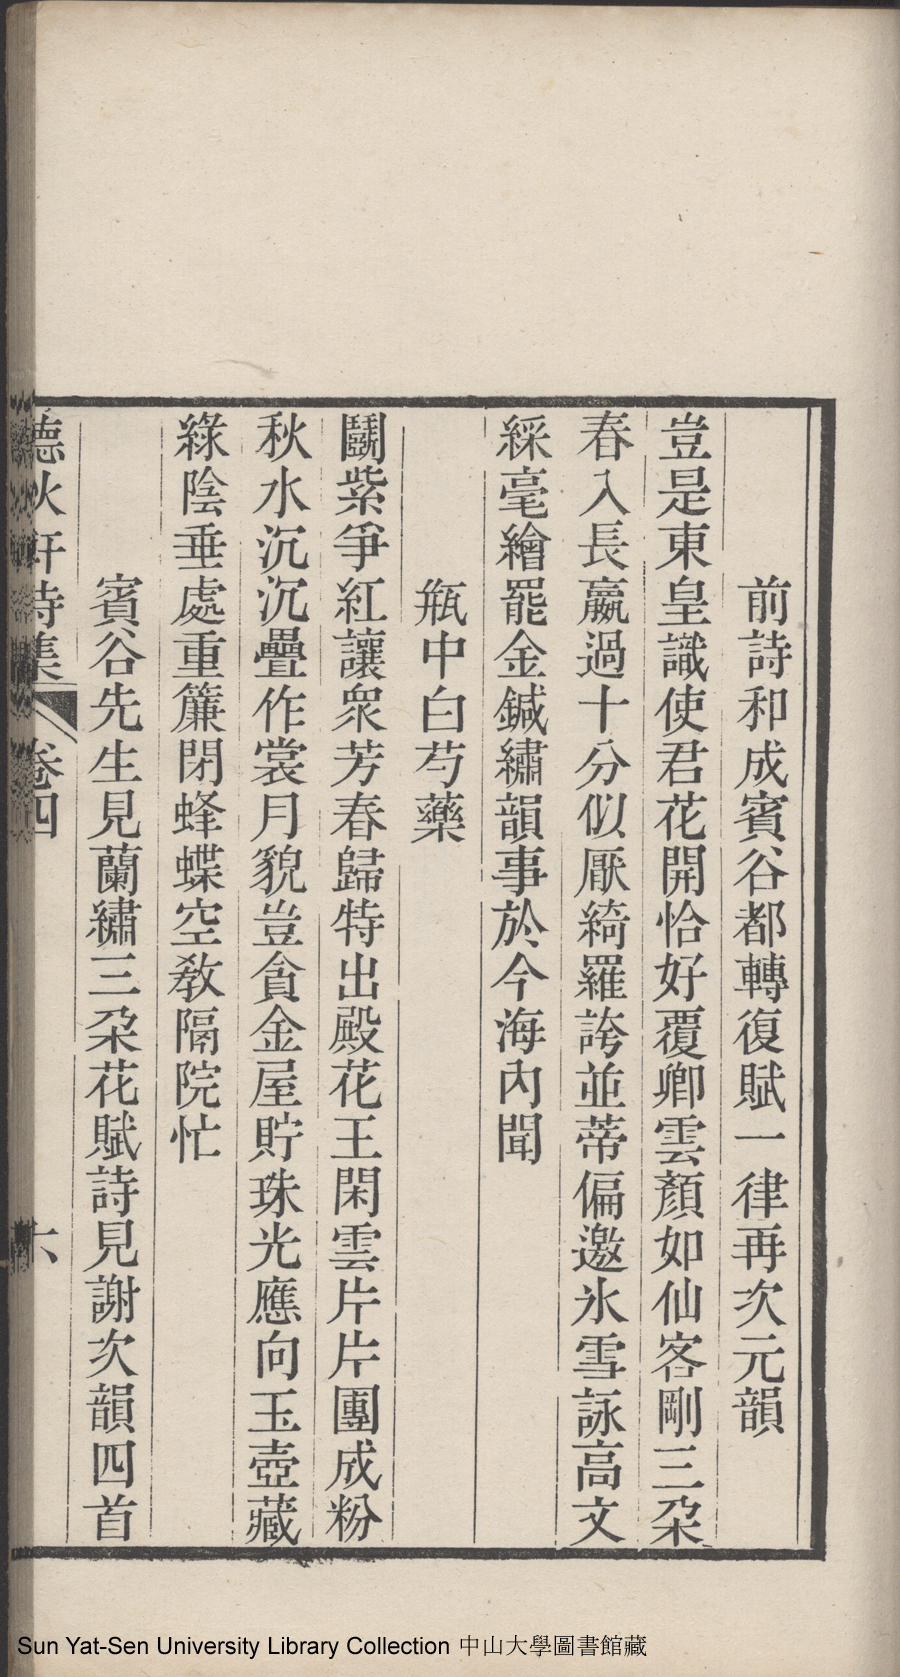 前詩和成賓谷都轉復賦一律再次元韻
豈是東皇識使君花開恰好覆卿雲顏如仙客剛三朶
春入長嬴過十分似厭綺羅誇並蒂偏邀氷雪詠高文
綵毫繪罷金鍼繡韻事於今海內聞
瓶中白芍藥
鬬紫爭紅讓衆芳春歸特出殿花王閑雲片片團成粉
秋水沉沉疊作裳月貌豈貪金屋貯珠光應向玉壺藏
綠陰垂處重簾閉蜂蝶空敎隔院忙
賓谷先生見蘭繡三朶花賦詩見謝次韻四首
德秋軒詩集 卷四 六
Sun Yat-Sen University Library Collection 中山大學圖書館藏